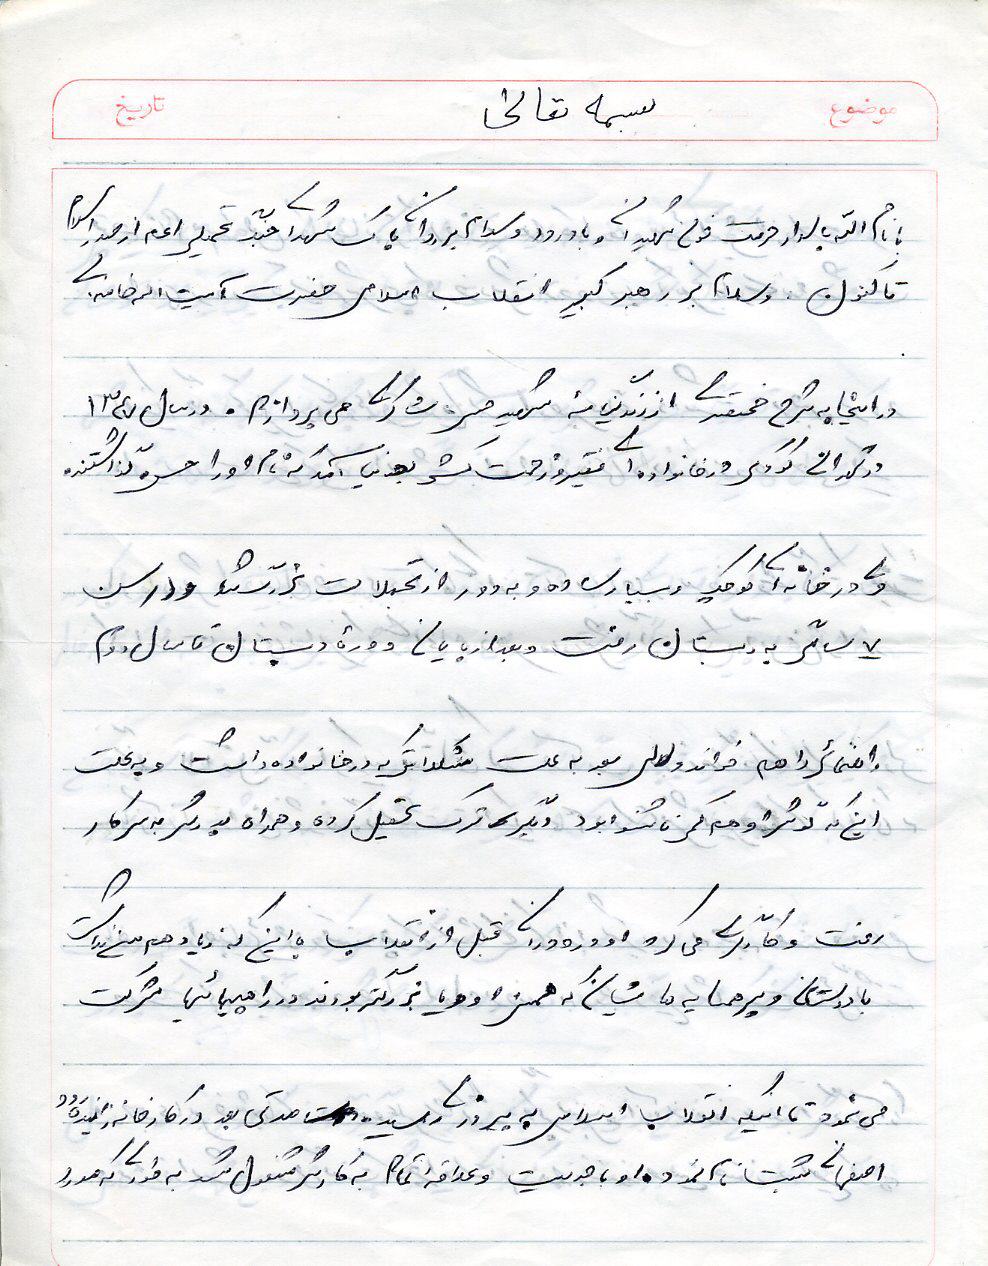 موضوع
بسمه تعالی
تاریخ
با نام الله پاسدار حرمت خون شهیدان و با درود و سلام بر روان پاک شهدای جنگ تحمیلی اعم از صدر اسلام
تا کنون . و سلام بر رهبر کبیر انقلاب اسلامی حضرت آیت اله خامنه ای
در اینجا به شرح مختصری از زندگینامه شهید می پردازم . در سال
در تهران کودکی در خانواده ای فقیر و زحمت کش بدنیا آمد که نام او را گذاشتند
وی در خانه ای کوچک و بسیار ساده و به دور از تجملات بزرگ شد و در سن
۷ سالگی به دبستان رفت و بعد از پایان دوره دبستان تا سال دوم
راهنمائی را هم خواند ولی بعد به علت مشکلاتی که در خانواده داشت و به علت
این که گوش او هم کمی ناشنوا بود دیگر ترک تحصیل کرده و همراه پدرش به سر کار
رفت و کارگری می کرد او در دوران قبل از انقلاب با این که زیاد هم سن نداشت
با دوستان و پسر همسایه هایشان که همه از او بزرگتر بودند در راهپیمائیها شرکت
می نمود تا اینکه انقلاب اسلامی به پیروزی رسید مدتی بعد در کارخانه
اصفهان ثبت نام نمود و او با جدیت و علاقه تمام به کارش مشغول شد به طوری که مورد